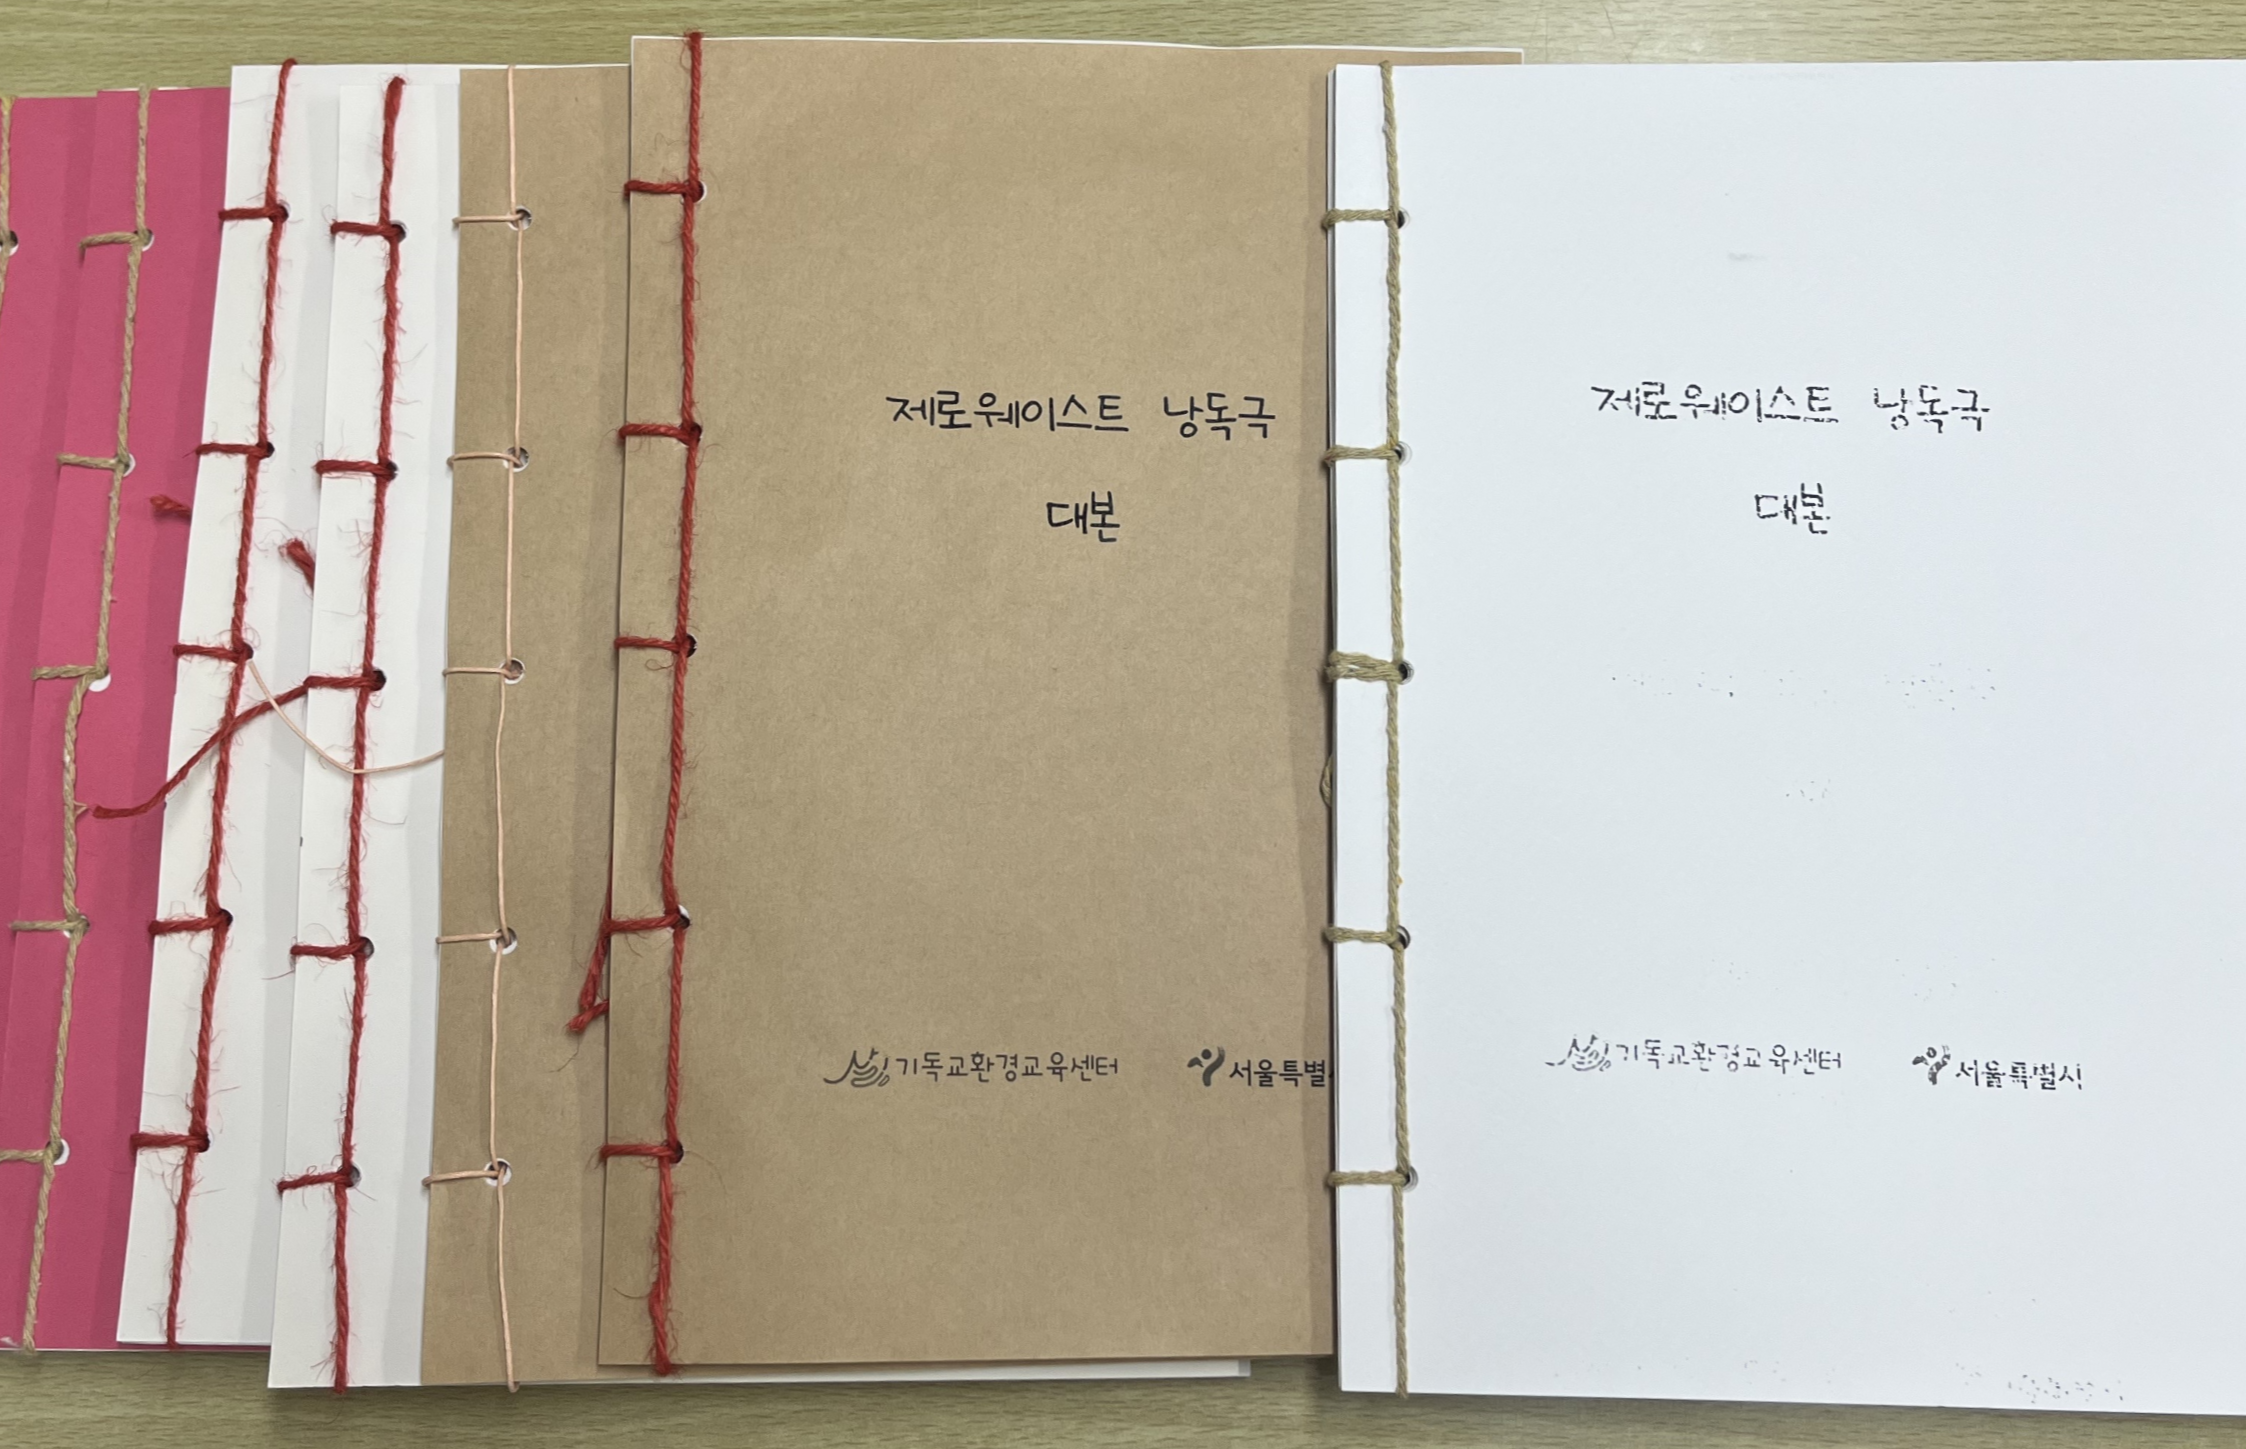 제로웨이스트 낭독극
대본
기독교환경교육센터 서울특별
제로웨이스트 낭독극
대본
기독교환경교육센터 서울특별시